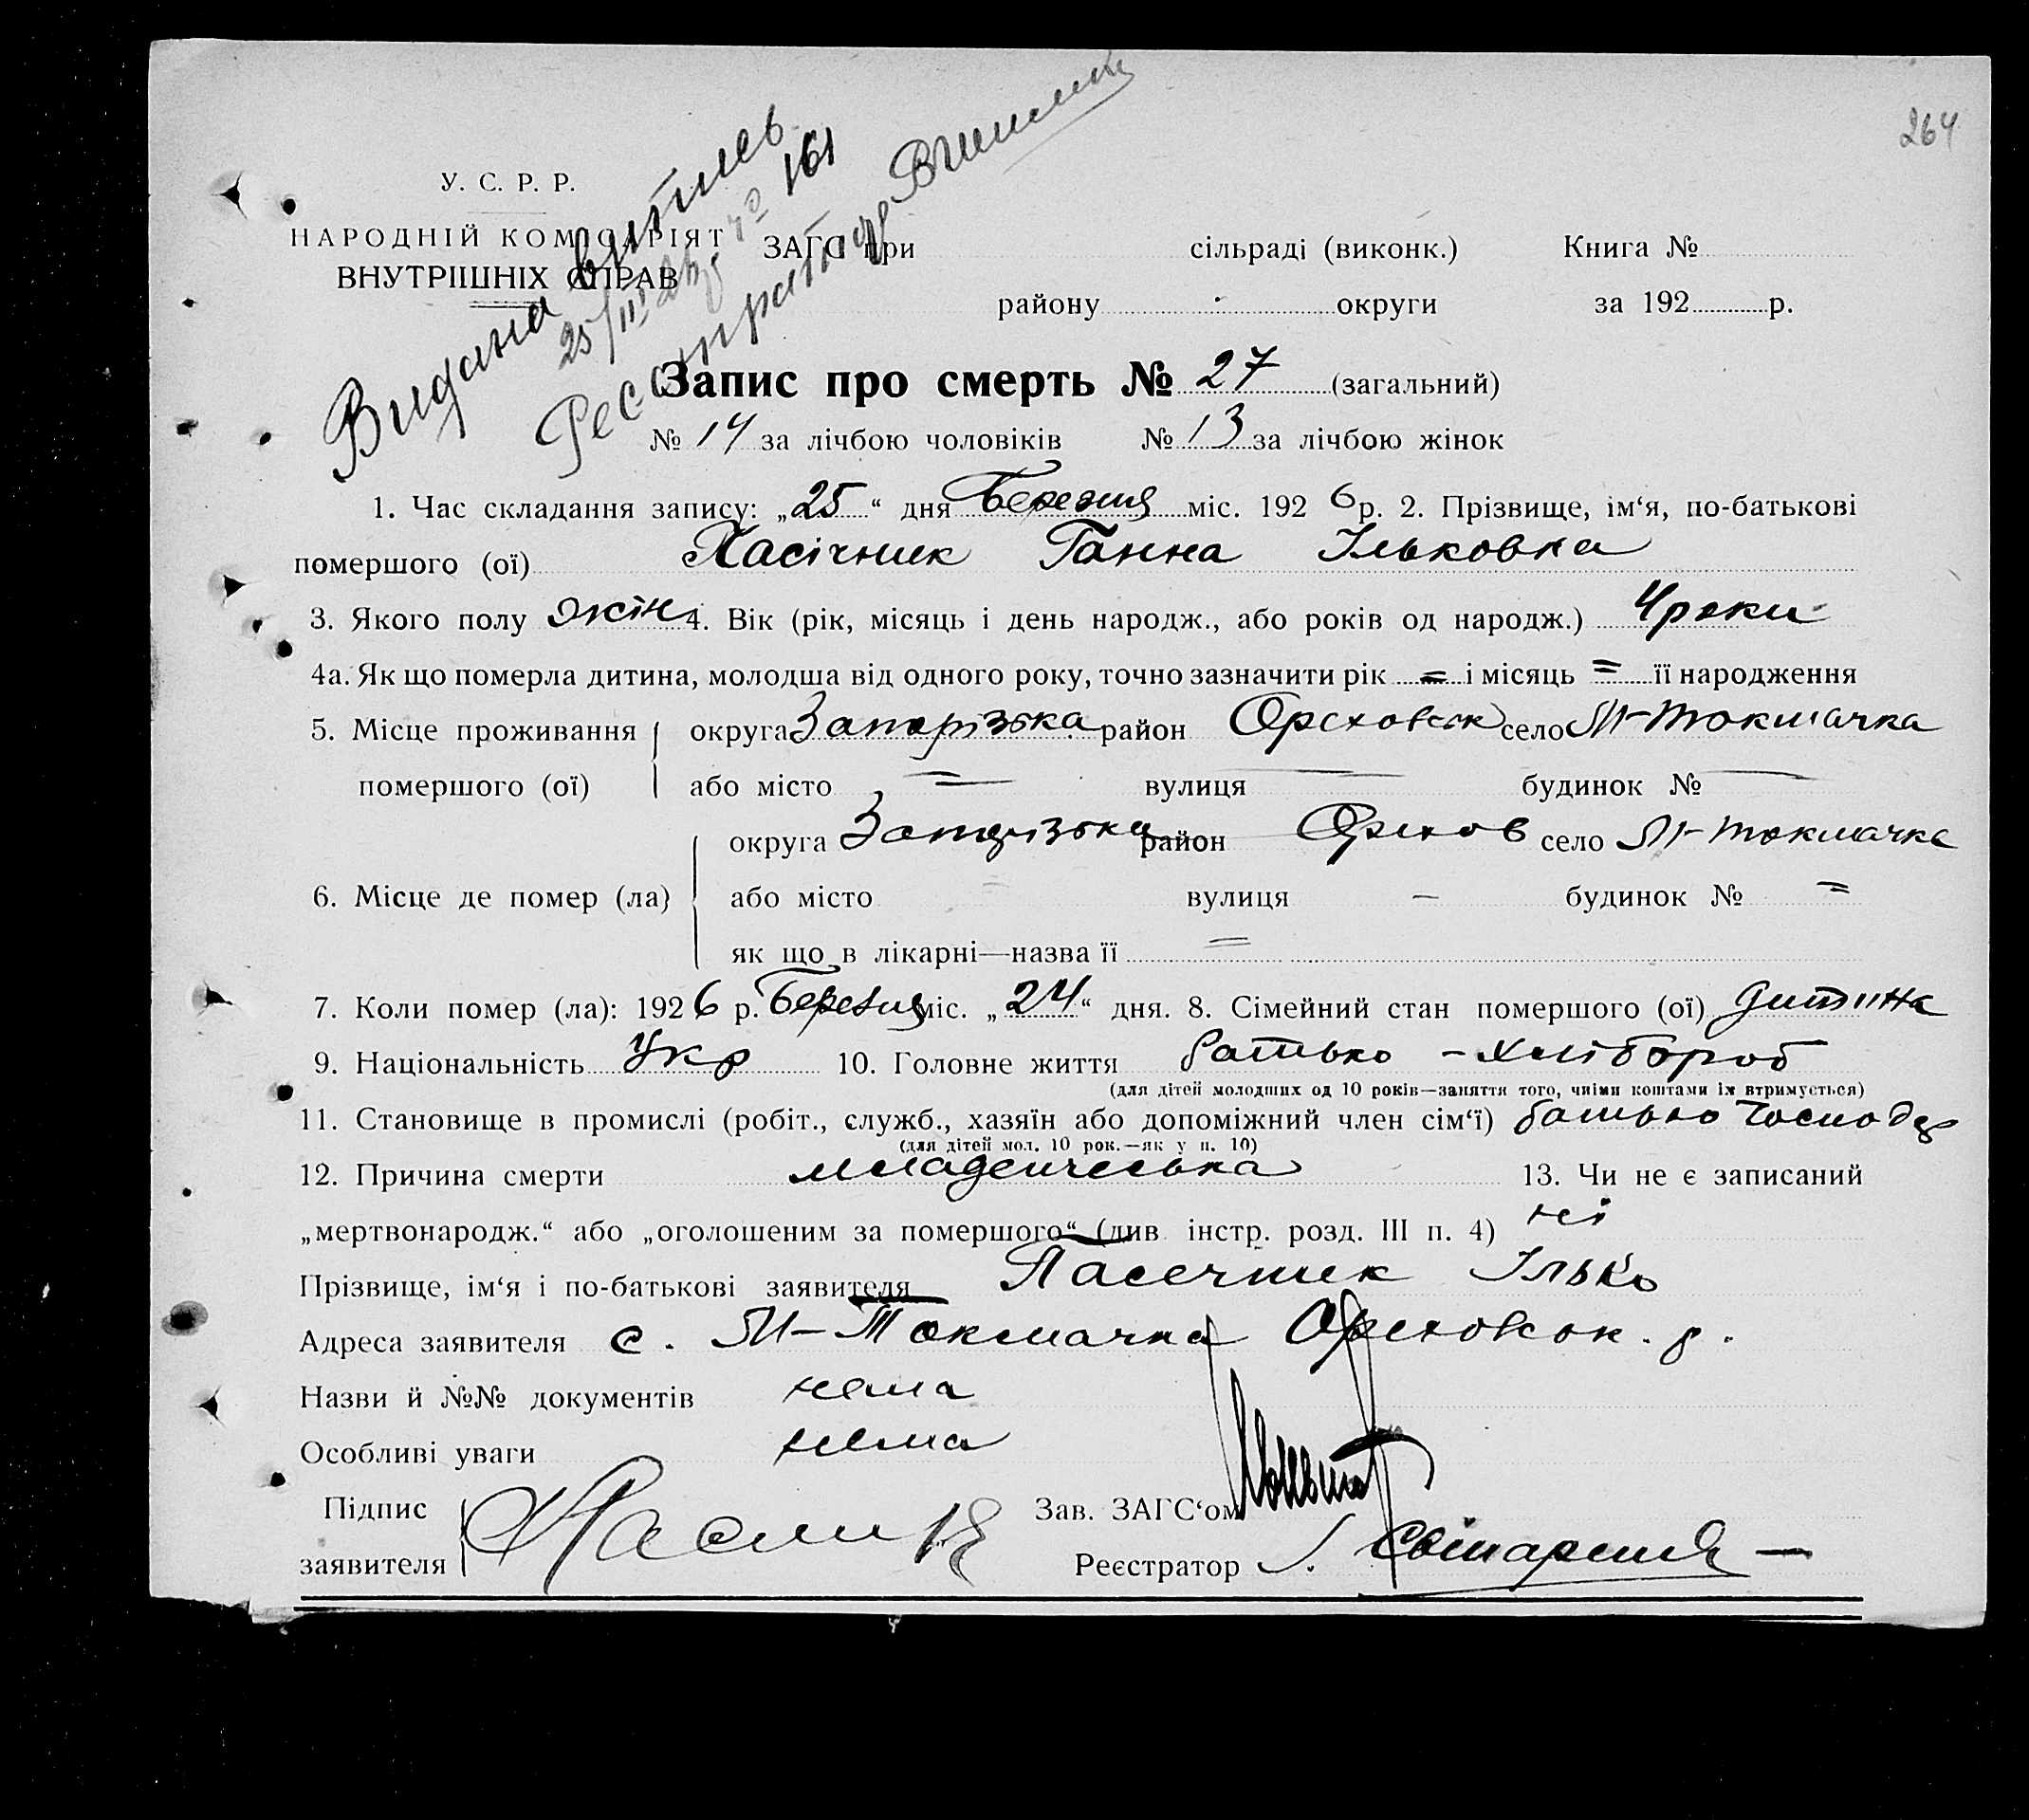 264
Видана витись
25/III 26 р № 161
У. С. Р. Р.
НАРОДНІЙ КОМІСАРІЯТ
ВНУТРІШНІХ СПРАВ
ЗАГС при сільраді (виконк.) Книга №
району округи за 192 р.
Запис про смерть № 27 (загальний)
№ 14 за лічбою чоловіків № 13 за лічбою жінок
1. Час складання запису: „25“ дня Березня міс. 1926 р. 2. Прізвище, ім‘я, по-батькові
помершого (ої) Пасічник Ганна Ільковна
3. Якого полу жін 4. Вік (рік, місяць і день народж., або років од народж.) 4 роки
4а. Як що померла дитина, молодша від одного року, точно зазначити рік = і місяць = її народження
5. Місце проживання помершого (ої) округа Запорізька район Ореховськ село М-Токмачка
або місто = вулиця — будинок № —
6. Місце де помер (ла) округа Запорізька район Орехов село М-Токмачка
або місто = вулиця — будинок № =
як що в лікарні—назва її =
7. Коли помер (ла): 1926 р. Березня міс. „24“ дня. 8. Сімейний стан помершого (ої) дитина
9. Національність Укр 10. Головне життя батько - хлібороб
(для дітей молодших од 10 років—заняття того, чиїми коштами їх втримується)
11. Становище в промислі (робіт., служб., хазяїн або допоміжний член сім‘ї) батько господар
(для дітей мол. 10 рок.—як у п. 10)
12. Причина смерти младенчеська 13. Чи не є записаний
„мертвонародж.“ або „оголошеним за помершого“ (див. інстр. розд. III п. 4) ні
Прізвище, ім‘я і по-батькові заявителя Пасечник Ілько
Адреса заявителя с. М-Токмачка Ореховськ. р.
Назви й №№ документів нема
Особливі уваги нема
Підпис заявителя
Зав. ЗАГС‘ом
Реєстратор